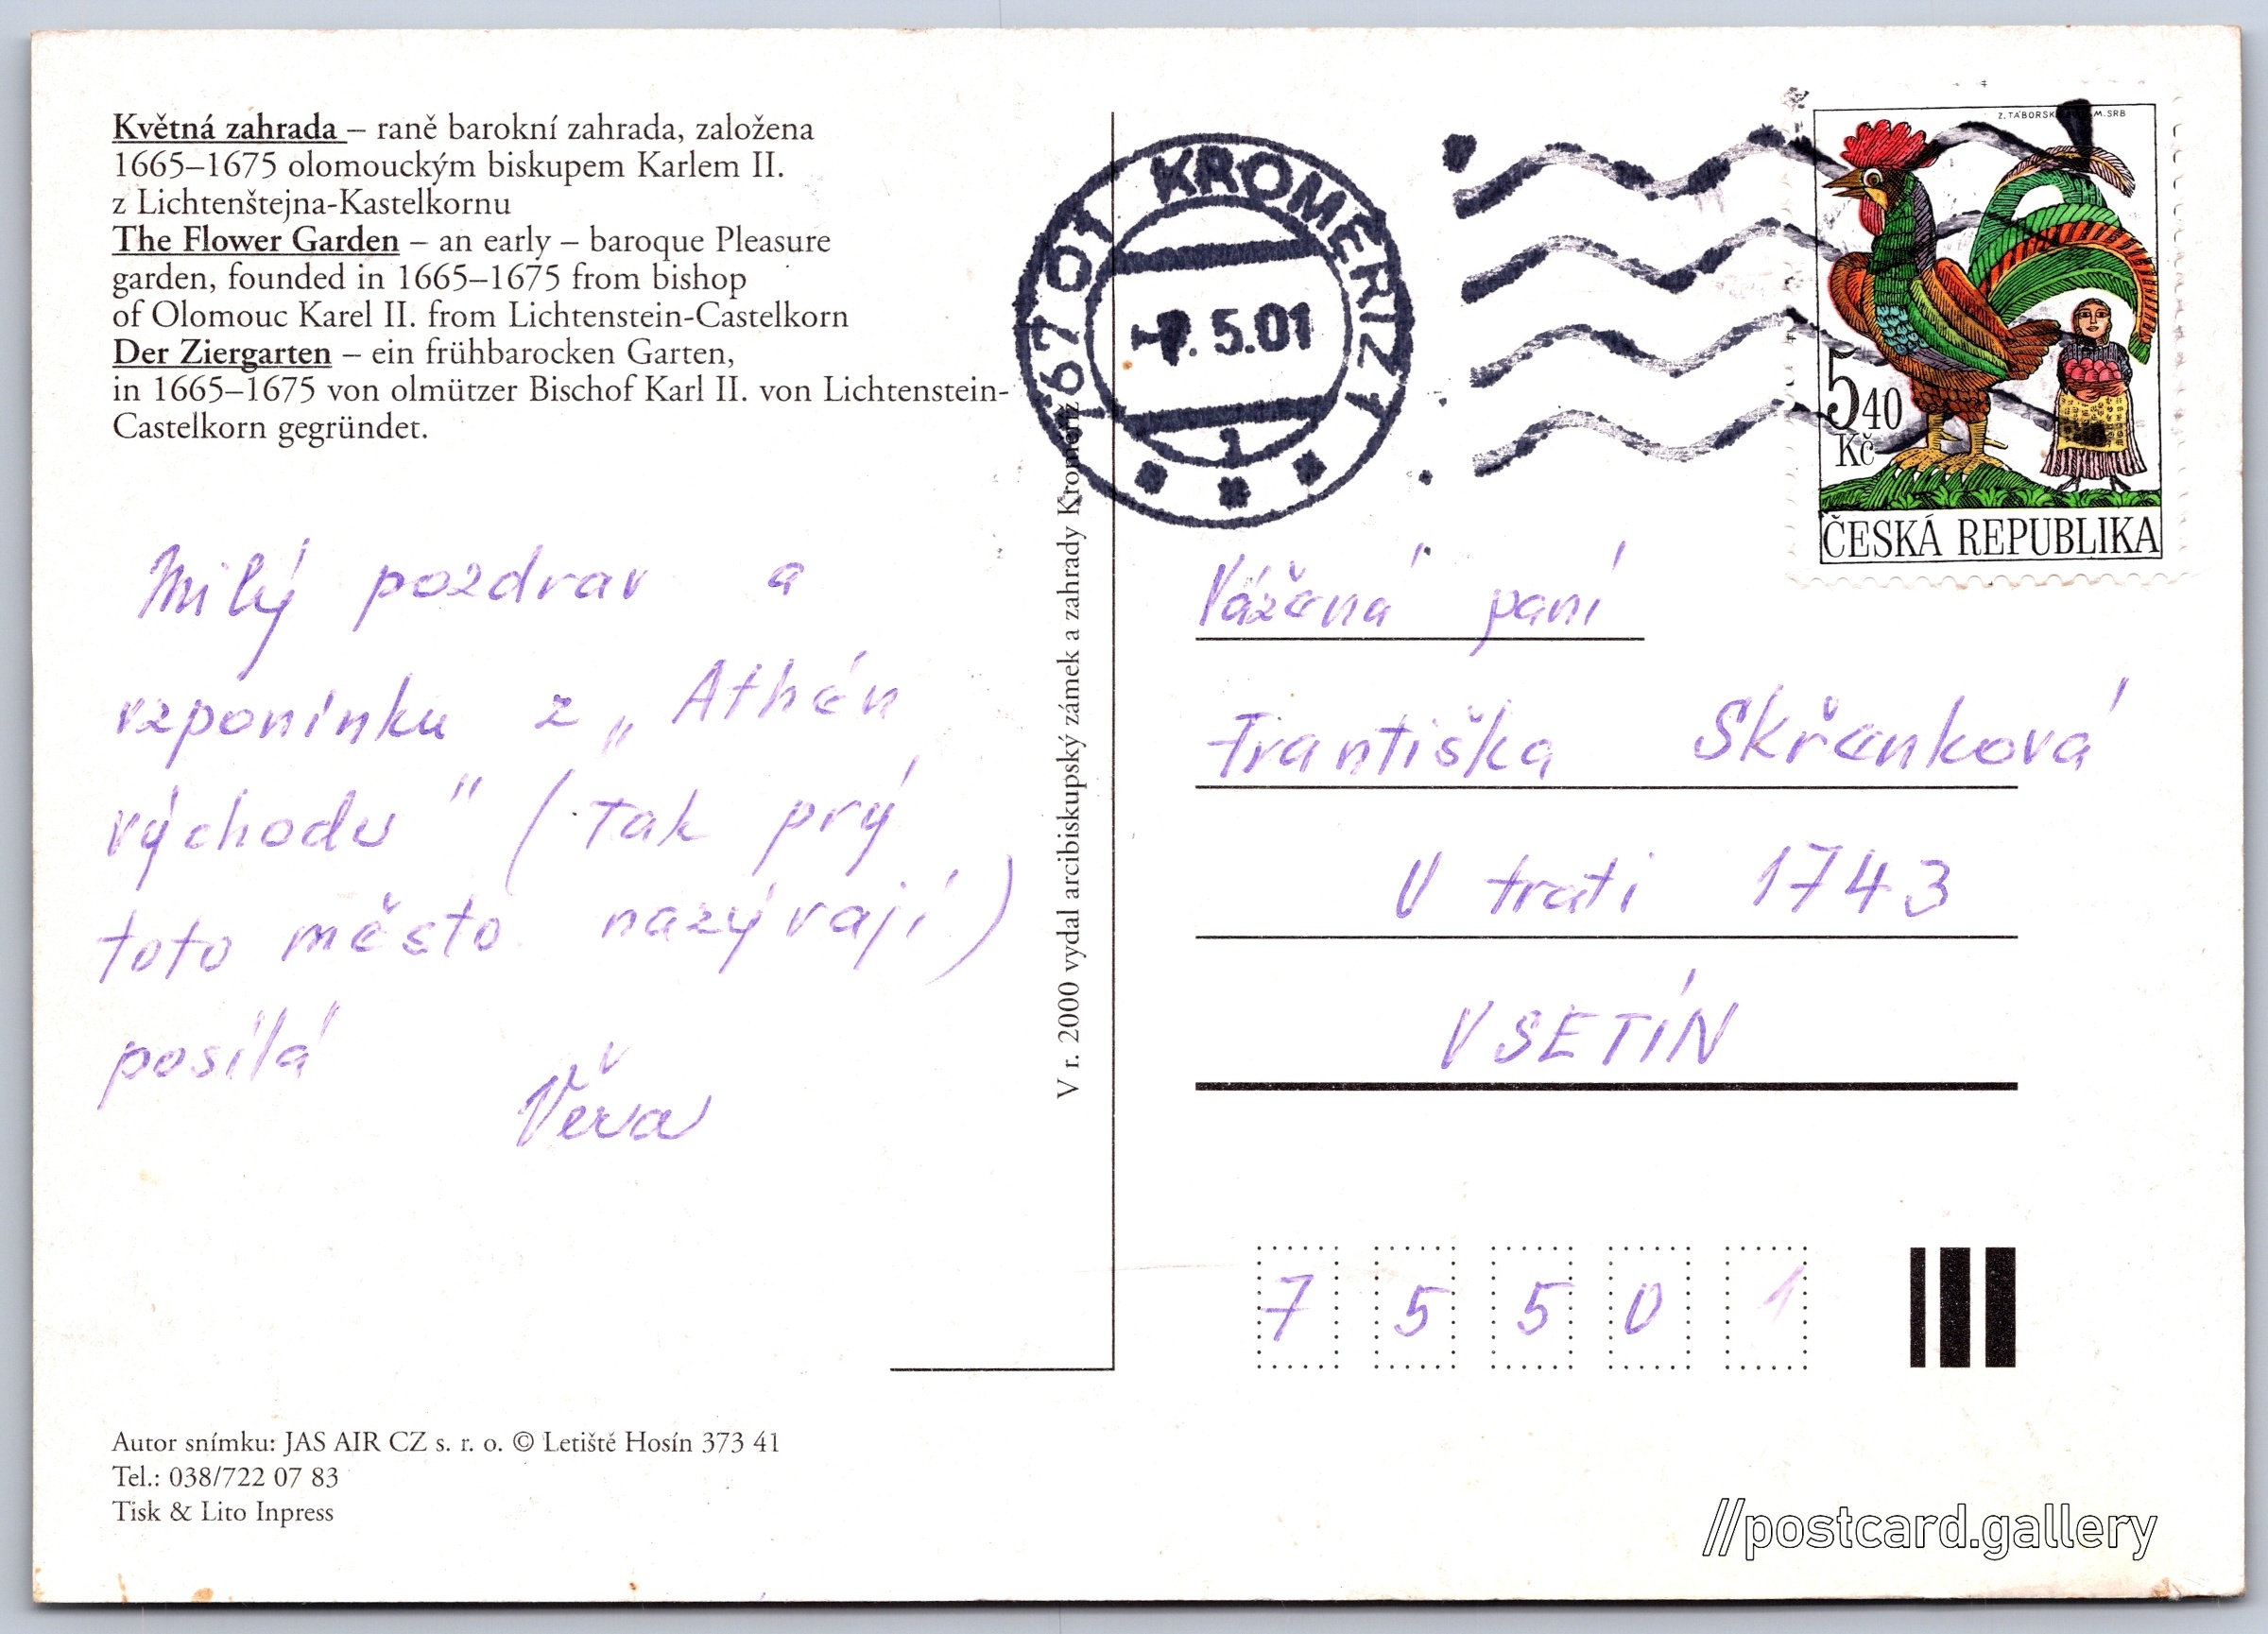 Květná zahrada – raně barokní zahrada, založena
1665–1675 olomouckým biskupem Karlem II.
z Lichtenštejna-Kastelkornu
The Flower Garden – an early – baroque Pleasure
garden, founded in 1665–1675 from bishop
of Olomouc Karel II. from Lichtenstein-Castelkorn
Der Ziergarten – ein frühbarocken Garten,
in 1665–1675 von olmützer Bischof Karl II. von Lichtenstein-
Castelkorn gegründet.
Milý pozdrav a
vzponínku z „Athén
východu" (tak prý
toto město nazývají)
posílá
Věra
Autor snímku: JAS AIR CZ s. r. o. © Letiště Hosín 373 41
Tel.: 038/722 07 83
Tisk & Lito Inpress
V r. 2000 vydal arcibiskupský zámek a zahrady Kroměříž
767 01 KROMĚŘÍŽ 1
5.01
1
Z. TÁBORSKÝ M. SRB
5,40
Kč
ČESKÁ REPUBLIKA
Vážená paní
Františka Skřenková
V trati 1743
VSETÍN
7 5 5 0 1
//postcard.gallery